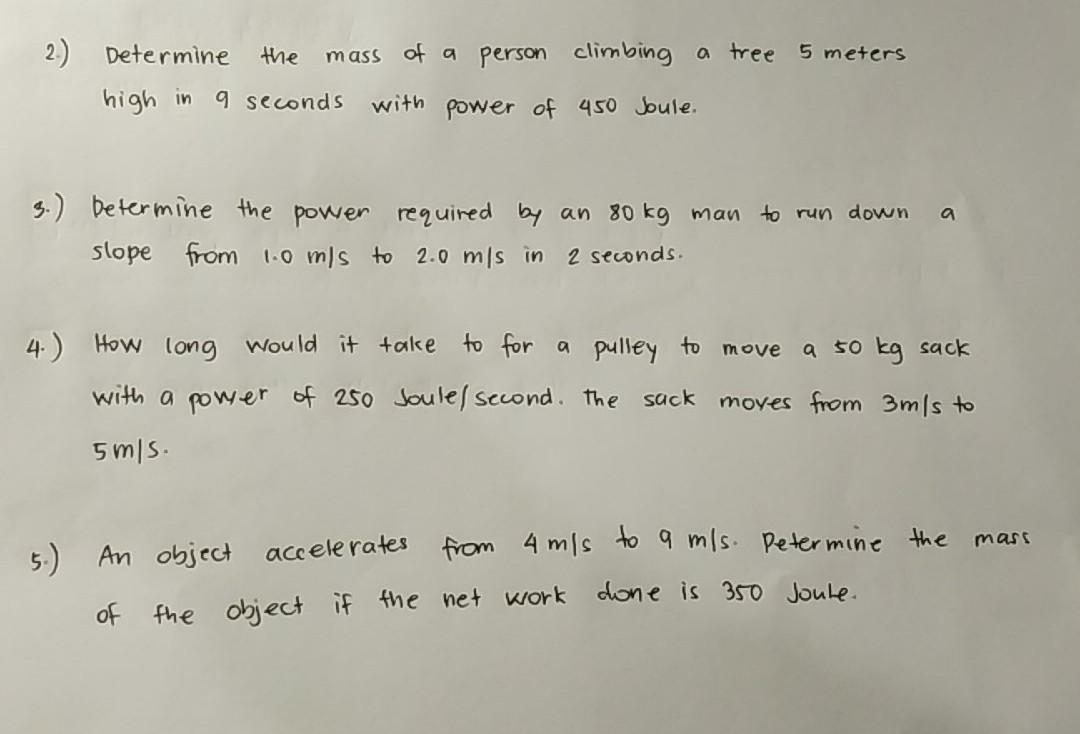 2.) Determine the mass of a person climbing a tree 5 meters
high in 9 seconds with power of 450 Joule.
3.) Determine the power required by an 80 kg man to run down a
slope from 1.0 m/s to 2.0 m/s in 2 seconds.
4.) How long would it take to for a pulley to move a 50 kg sack
with a power of 250 Joule/second. The sack moves from 3m/s to
5m/s.
5.) An object accelerates from 4 m/s to 9 m/s. Determine the mass
of the object if the net work done is 350 Joule.